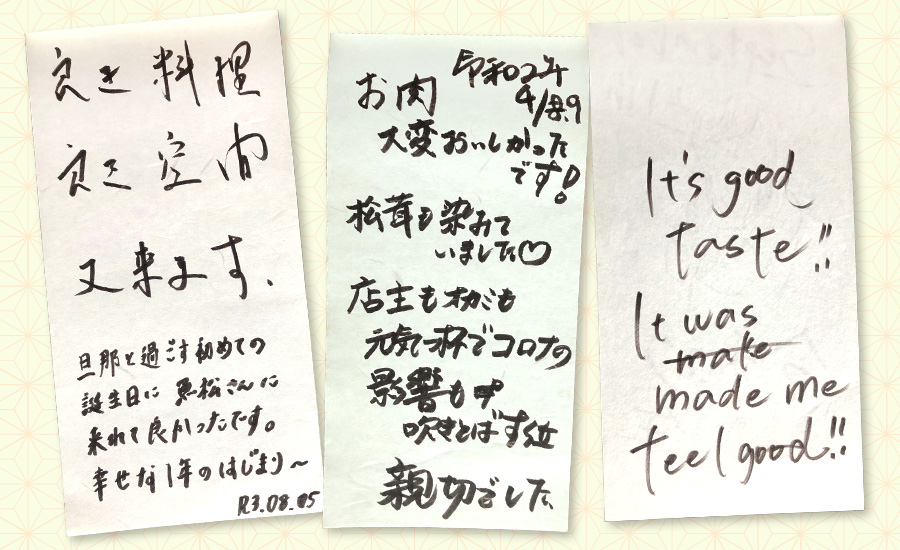 良き料理
良き空間
又来ます.
旦那と過ごす初めての
誕生日に 魚松さんに
来れて良かったです。
幸せな1年のはじまり〜
R3.08.05
令和02年
4/8.9
お肉
大変おいしかった
です!
松茸も染みて
いました♡
店主もオカミも
元気一杯でコロナの
影響も
吹きとばす位
親切でした、
It's good
taste!!
It was
make
made me
feel good!!